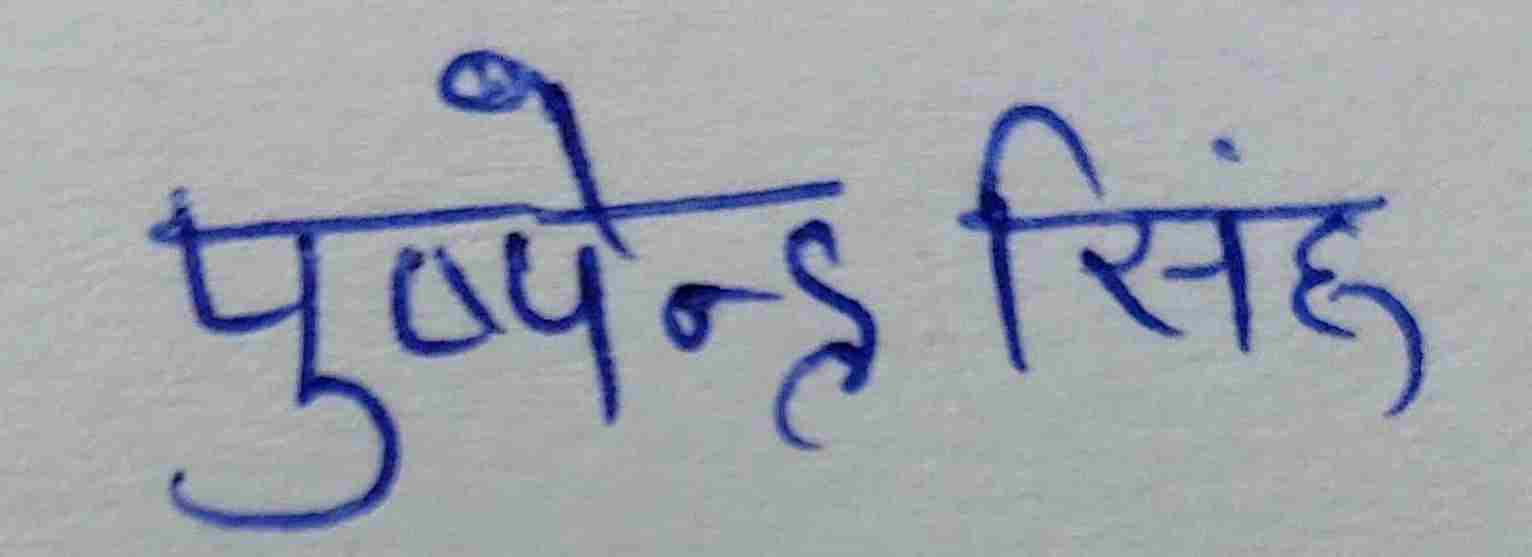 पुष्पेन्द्र सिंह